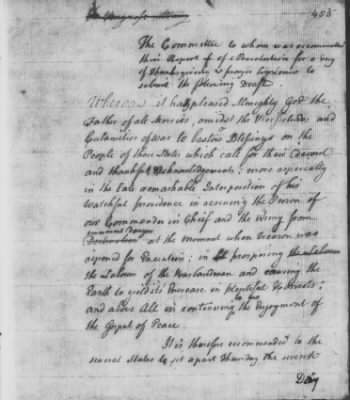 453
The Committee to whom was recommitted
their Report of a Proclamation for a Day
of Thanksgiving & prayer beg leave to
submit the following Draft.
Whereas it hath pleased Almighty God the
Father of all Mercies, amidst the Vicissitudes and
Calamities of War to bestow Blessings on the
People of these States which call for their devout
and thankful Acknowledgements; more especially
in the late remarkable Interposition of his
watchful providence in rescuing the Person of
our Commander in Chief and the Army from
imminent Dangers
Destruction at the moment when Treason was
ripened for Execution; in prospering the Labours
the Labour of the Husbandman and causing the
Earth to yield its Increase in plentiful Harvests;
and above All in continuing to us the Enjoyment of
the Gospel of Peace.
It is therefore recommended to the
several States to set apart Thursday the seventh
Day